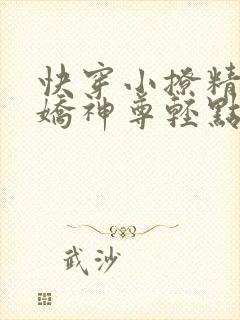 快穿小撩精
嬌神尊輕點
武沙